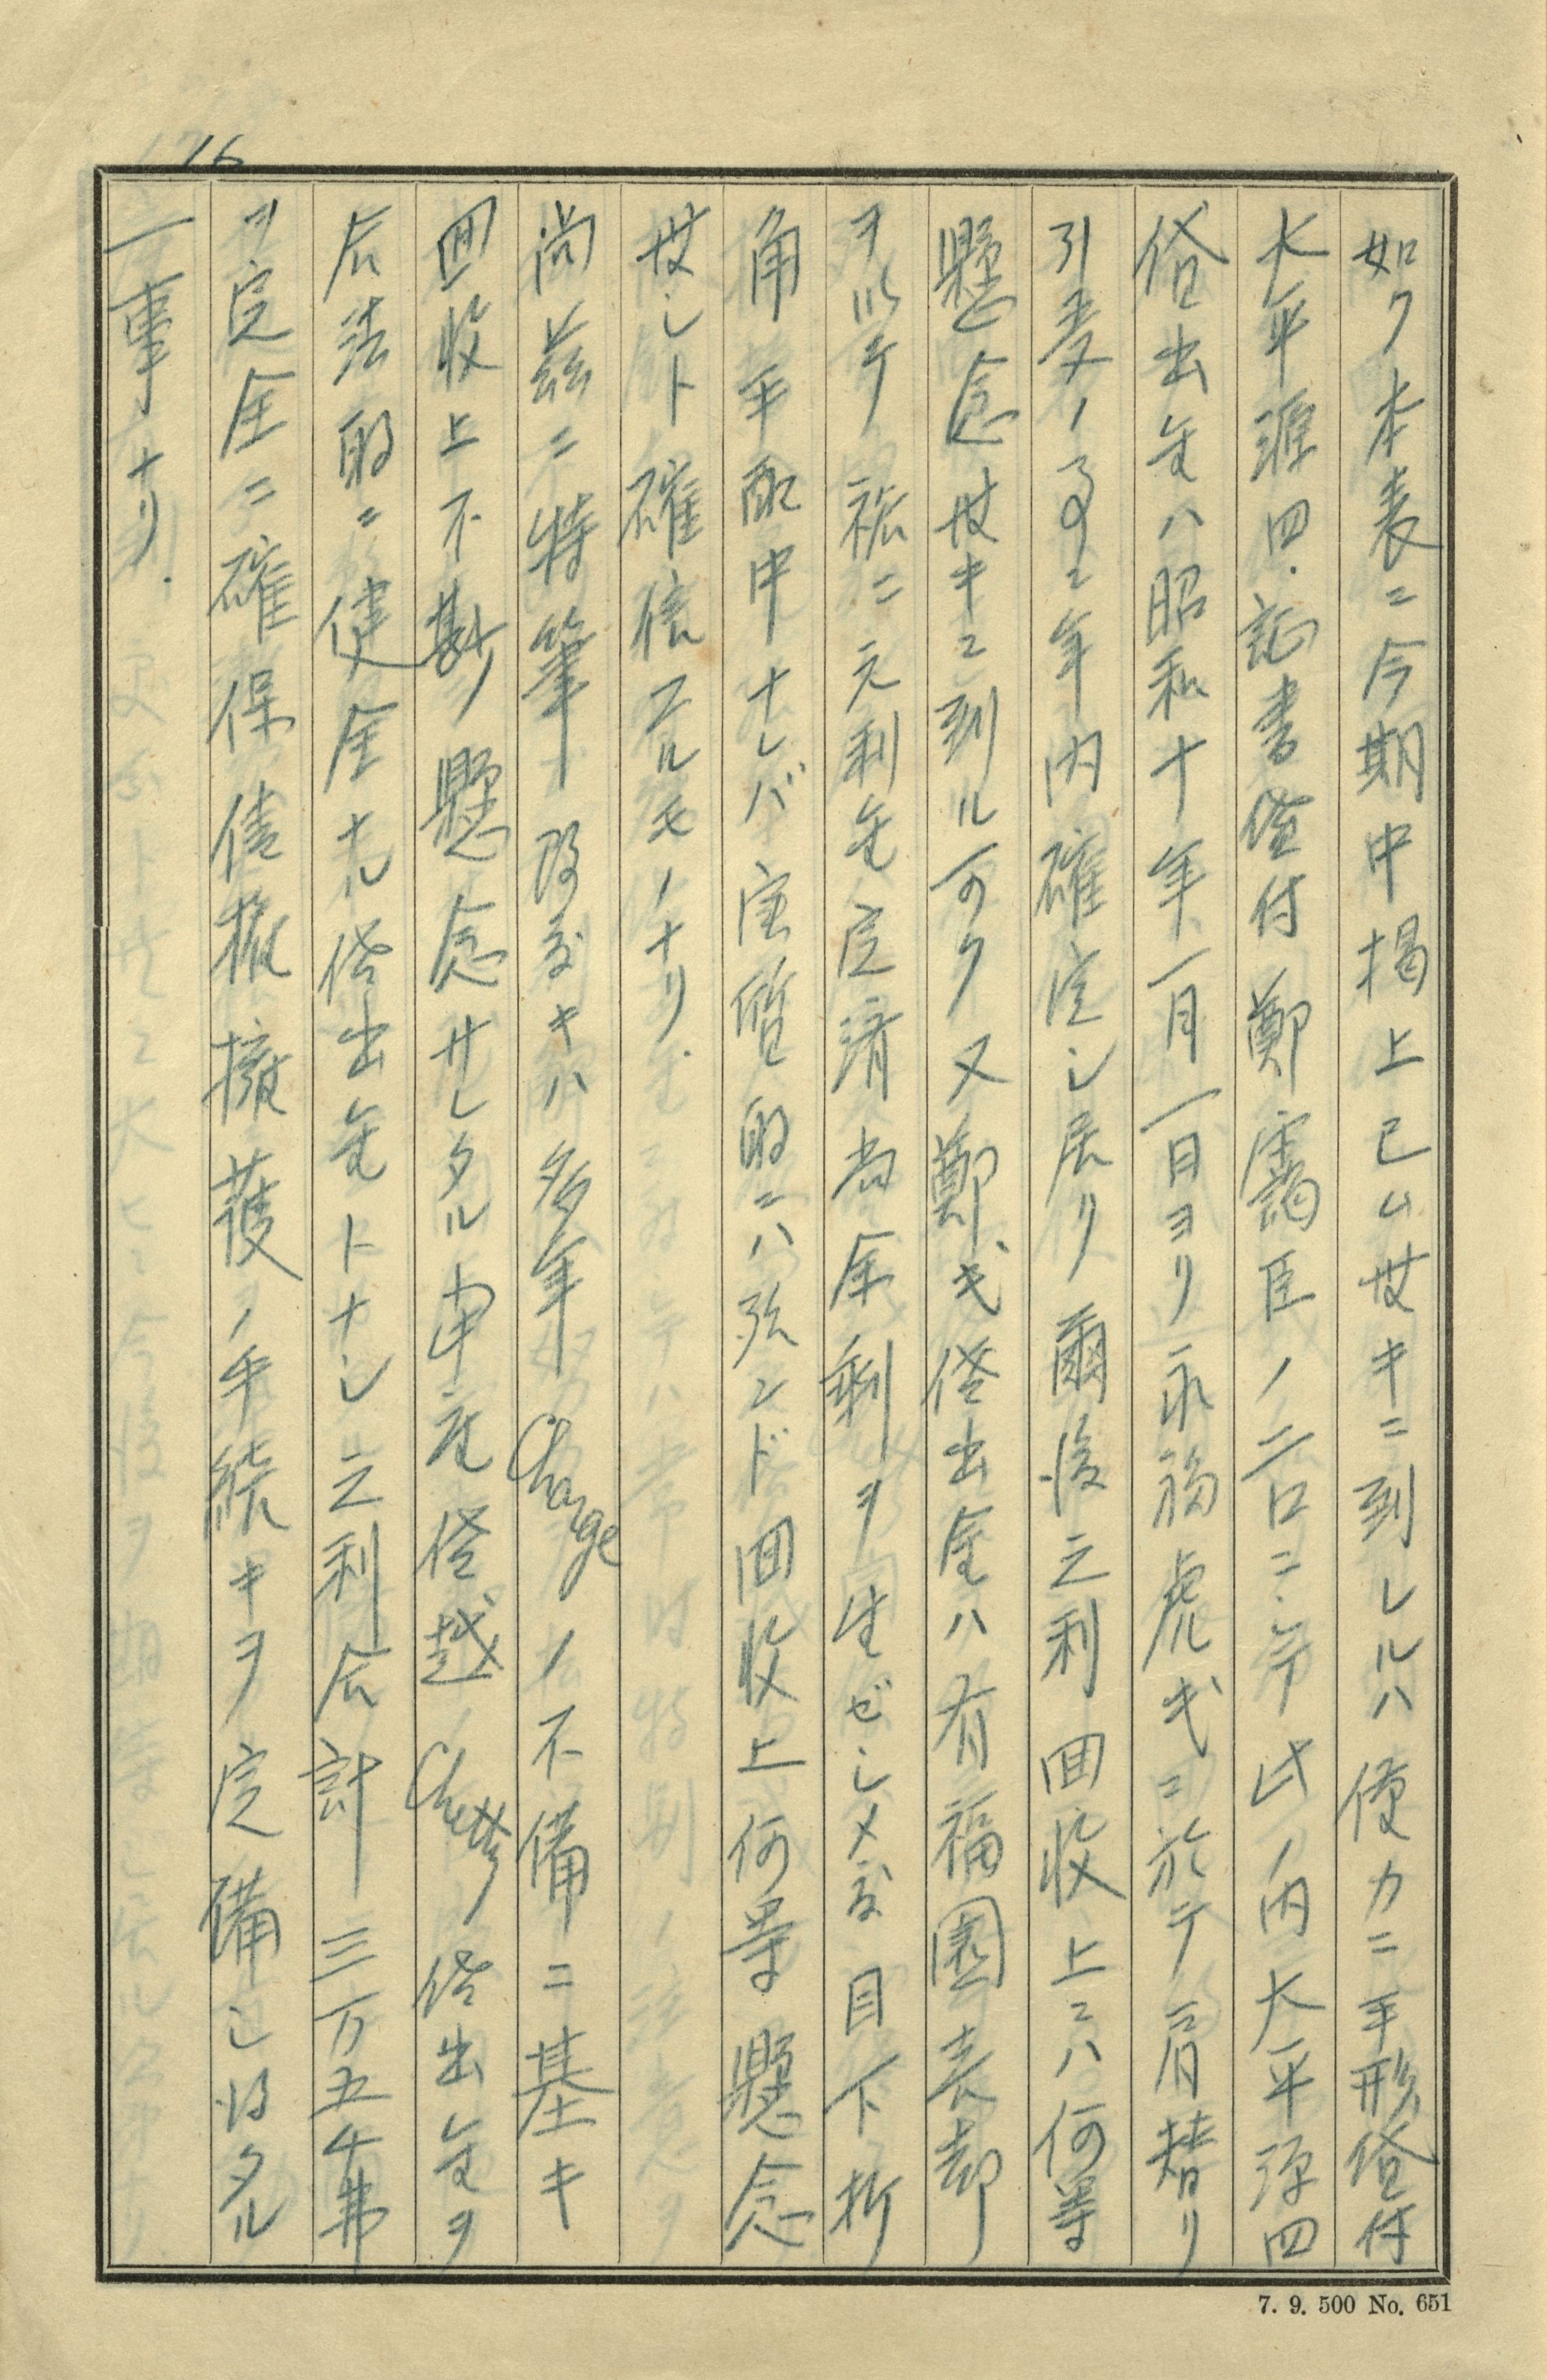 16
如ク本表ニ今期中掲上已ム世キニ到レルハ僅カニ手形貸付
大平源四、証書貸付鄭靄臣ノ二口ニテ此ノ内大平源四
貸出金ハ昭和十年一月一日ヨリ永福虎ギニ於テ肩替リ
引受ノ事ニ年内確定シ居リ爾後元利回收上ニハ何等
懸念世キニ到ル可ク又鄭ギ貸出金ハ有福園売却
ヲ以テ茲ニ元利金完済尚余剰ヲ生ゼシメ度目下折
角手配中ナレバ実質的ニハ殆ンド回收上何等懸念
世シト確信スルモノナリ.
尚茲ニ特筆致度キハ多年Chargeノ不備ニ基キ
回收上不尠懸念サレタル申庇貸越Chetty貸出金ヲ
合法的ニ健全ナル貸出金トナシ元利合計三万五千弗
ヲ完全ニ確保債権擁護ノ手続キヲ完備シ得タル
一事ナリ.
7. 9. 500 No. 651